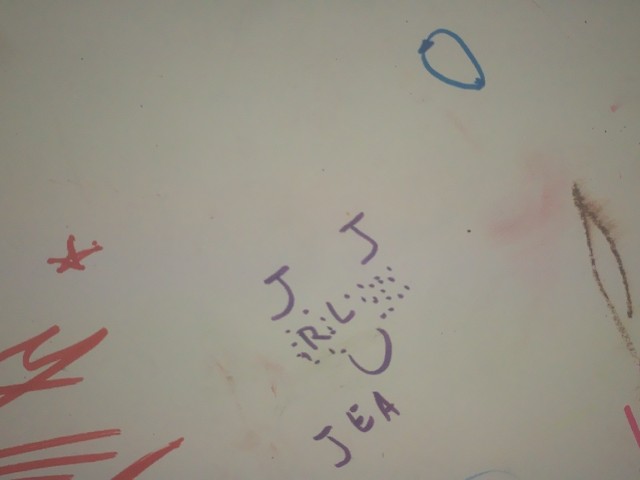 J J
RL
JEA